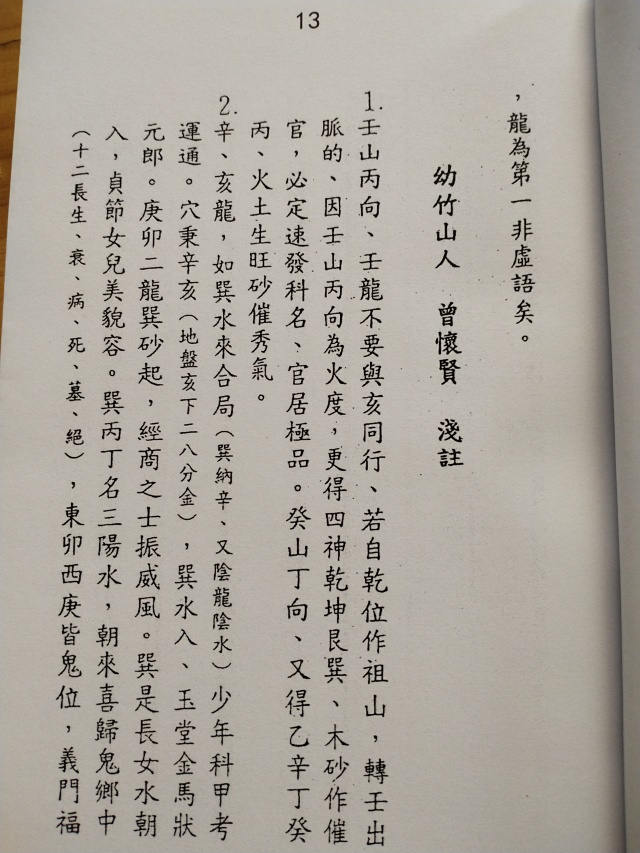 13
，龍為第一非虛語矣。
幼竹山人　曾懷賢　淺註
1.壬山丙向、壬龍不要與亥同行、若自乾位作祖山，轉壬出
脈的、因壬山丙向為火度，更得四神乾坤艮巽、木砂作催
官，必定速發科名、官居極品。癸山丁向、又得乙辛丁癸
丙、火土生旺砂催秀氣。
2.辛、亥龍，如巽水來合局（巽納辛、又陰龍陰水）少年科甲考
運通。穴秉辛亥（地盤亥下二八分金），巽水入、玉堂金馬狀
元郎。庚卯二龍巽砂起，經商之士振威風。巽是長女水朝
入，貞節女兒美貌容。巽丙丁名三陽水，朝來喜歸鬼鄉中
（十二長生、衰、病、死、墓、絕），東卯西庚皆鬼位，義門福